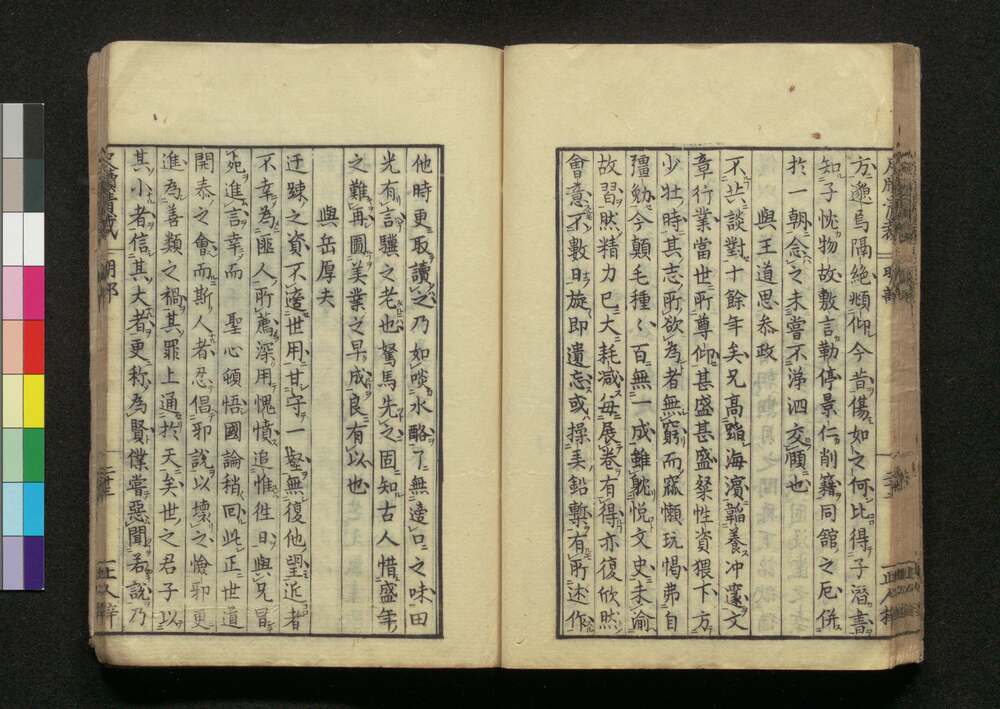 方邈焉隔絶頫仰今昔傷如之何比得子潛書
知子忱物故敷言勒停景仁削籍同舘之厄併
於一朝念之未嘗不涕泗交頤也
與王道思叅政
不共談對十餘年矣兄高蹈海濱韜養冲邃文
章行業當世所尊仰甚盛甚盛粲性資猥下方
少壯時其志所欲為者無窮而窳懶玩愒弗自
彊勉今顛毛種〻百無一成雖耽悦文史未渝
故習然精力已大耗減每展卷有得亦復欣然
會意不數日旋即遺忘或操弄鉛槧有所述作
他時更取讀之乃如啖水酪了無邊口之味田
光有言驥之老也駑馬先之固知古人惜盛年
之難再圖美業之早成良有以也
與岳厚夫
迂踈之資不適世用甘守一壑無復他望近者
不幸為匪人所薦深用愧憤追惟徃日與兄冒
死進言幸而聖心頓悟國論稍回此正世道
開泰之會而斯人者忍倡邪說以壞之儉邪更
進為善類之禍其罪上通於天矣世之君子以
其小者信其大者更称為賢僕嘗惡聞若說乃